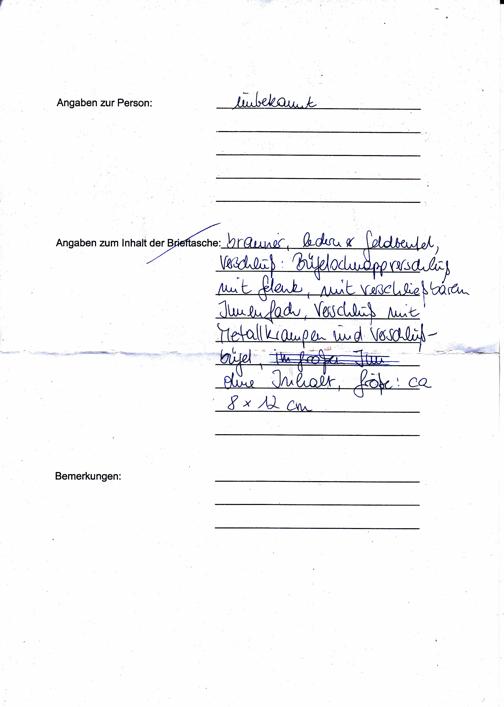 Angaben zur Person: unbekannt
Angaben zum Inhalt der Brieftasche: brauner, lederner Geldbeutel,
Verschluß: Bügelschnappverschluß
mit Gelenk, mit verschließbarem
Innenfach, Verschluß mit
Metallkrampen und Verschluß-
bügel, im großen Inn
ohne Inhalt, Größe: ca
8 x 12 cm
Bemerkungen: